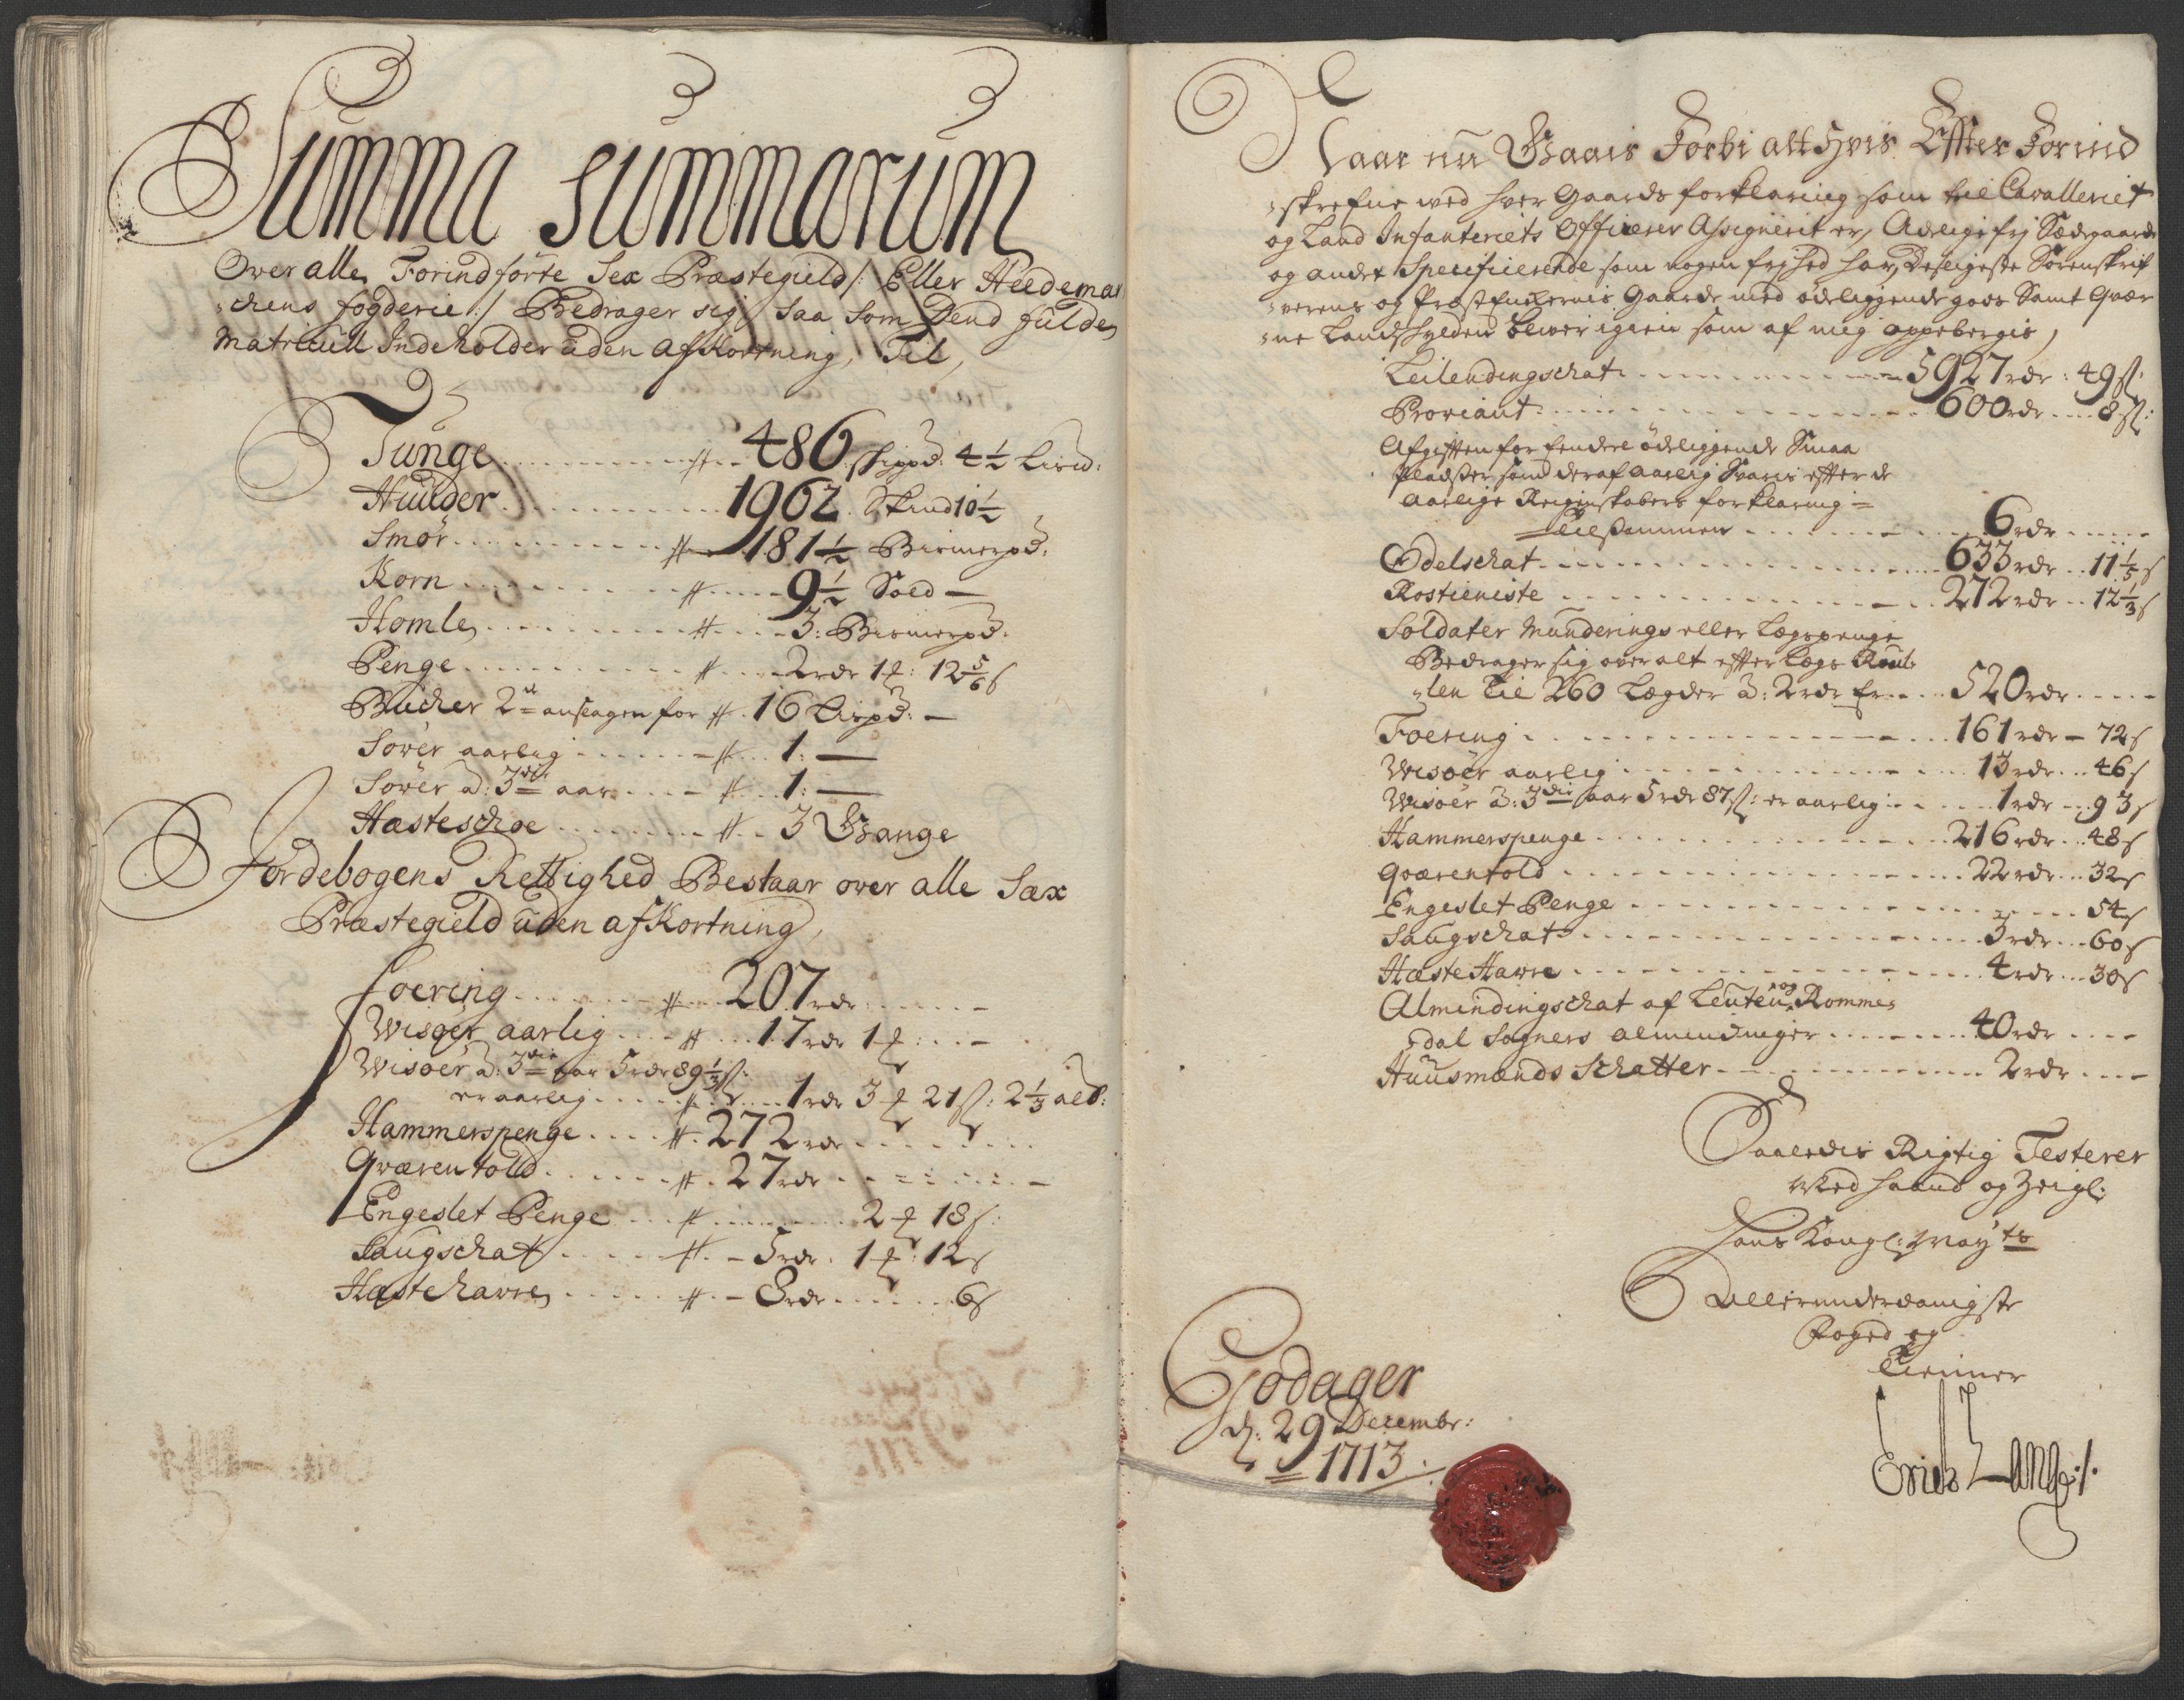 Summa Summarum
Over alle Forindførte Sex Præstegield /: Eller Heedemar
:chens fogderie :/ Bedrager sig saa som Dend fulde
Matricull Indeholder uden afkortning, Til,
Tunge 486 Skippd: 4½ Lisd:
Huuder 1962 Skind 10½
Smør 181½ Bismerpd:
Korn 9½ Sold
Homle 3: Bismerpd:
Penge 2 rdr 1 ₰: 12 5/6 s
Bucher 2de anslagen for 16 Lispd:
Sover aarlig 1:
Sover ä: 3die aar 1:
Hæsteschoe 3 Gange
Jordebogens Rettighed Bestaar over alle Sæx
Præstegield uden afkortning,
Foering 207 rdr
Wisøer aarlig 17 rdr 1 ₰:
Wisøer ä: 3die aar 5 rdr 89⅓ s:
er aarlig 1 rdr 3 ₰ 21 s: 2⅓ alb:
Hammerspenge 272 rdr
Qværentold 27 rdr
Engeslet Penge 2 ₰ 18 s:
Saugschat 5 rdr. 1 ₰: 12 s
Hæstehavre 8 rdr 6 s
Naar nu Gaais Forbi alt Hvis Effter Forind
:skrefne ved hver Gaards forklaring som til Cavalleriet
og Land Infanteriets Officerer Assignerit er, Adelige frj Sædegaarde
og andre Specificerende som nogen frjhed har, Desligeste Sorenskrif
:verens og Præstenkernis Gaarde med ødeliggende gods Samt Qvær
:ne Landschylden bliver igien som af mig oppebergis,
Leilendingschat 5927 rdr: 49 s:
Proviant 600 rdr 8 s:
Afgifften for endeel ødeliggende Smaa
Pladsser som deraf aarlig Svaris effter de
aarlige Regenskabers forklaring =
tilsammen 6 rdr
Odelschat 633 rdr 11⅕ s
Rostieniste 272 rdr 12⅓ s
Soldater Munderings eller Lægspenge
Bedrager sig over alt effter Lægs Roul:
:len til 260 Lægder ä: 2 rdr er 520 rdr
Foering 161 rdr 72 s
Wisøer aarlig 13 rdr 46 s
Wisøer ä: 3die aar 5 rdr 87 s: er aarlig 1 rdr 93 s
Hammerspenge 216 rdr 48 s
Qværentold 22 rdr 32 s
Engeslet Penge 54 s
Saugschat 3 rdr 60 s
Hæste Havre 4 rdr 30 s
Almindingschat af Leuten og Rommes
:dal Sogners almindinger 40 rdr
Huusmænds Schatter 2 rdr
Saaledis Rigtig Testerer
Med haand og Zeigl:
Hans Kongl: Mayts
Allerunderdanigste
Foged og
Tienner
Godager
d: 29 Decembr:
1713.
Erich Lange